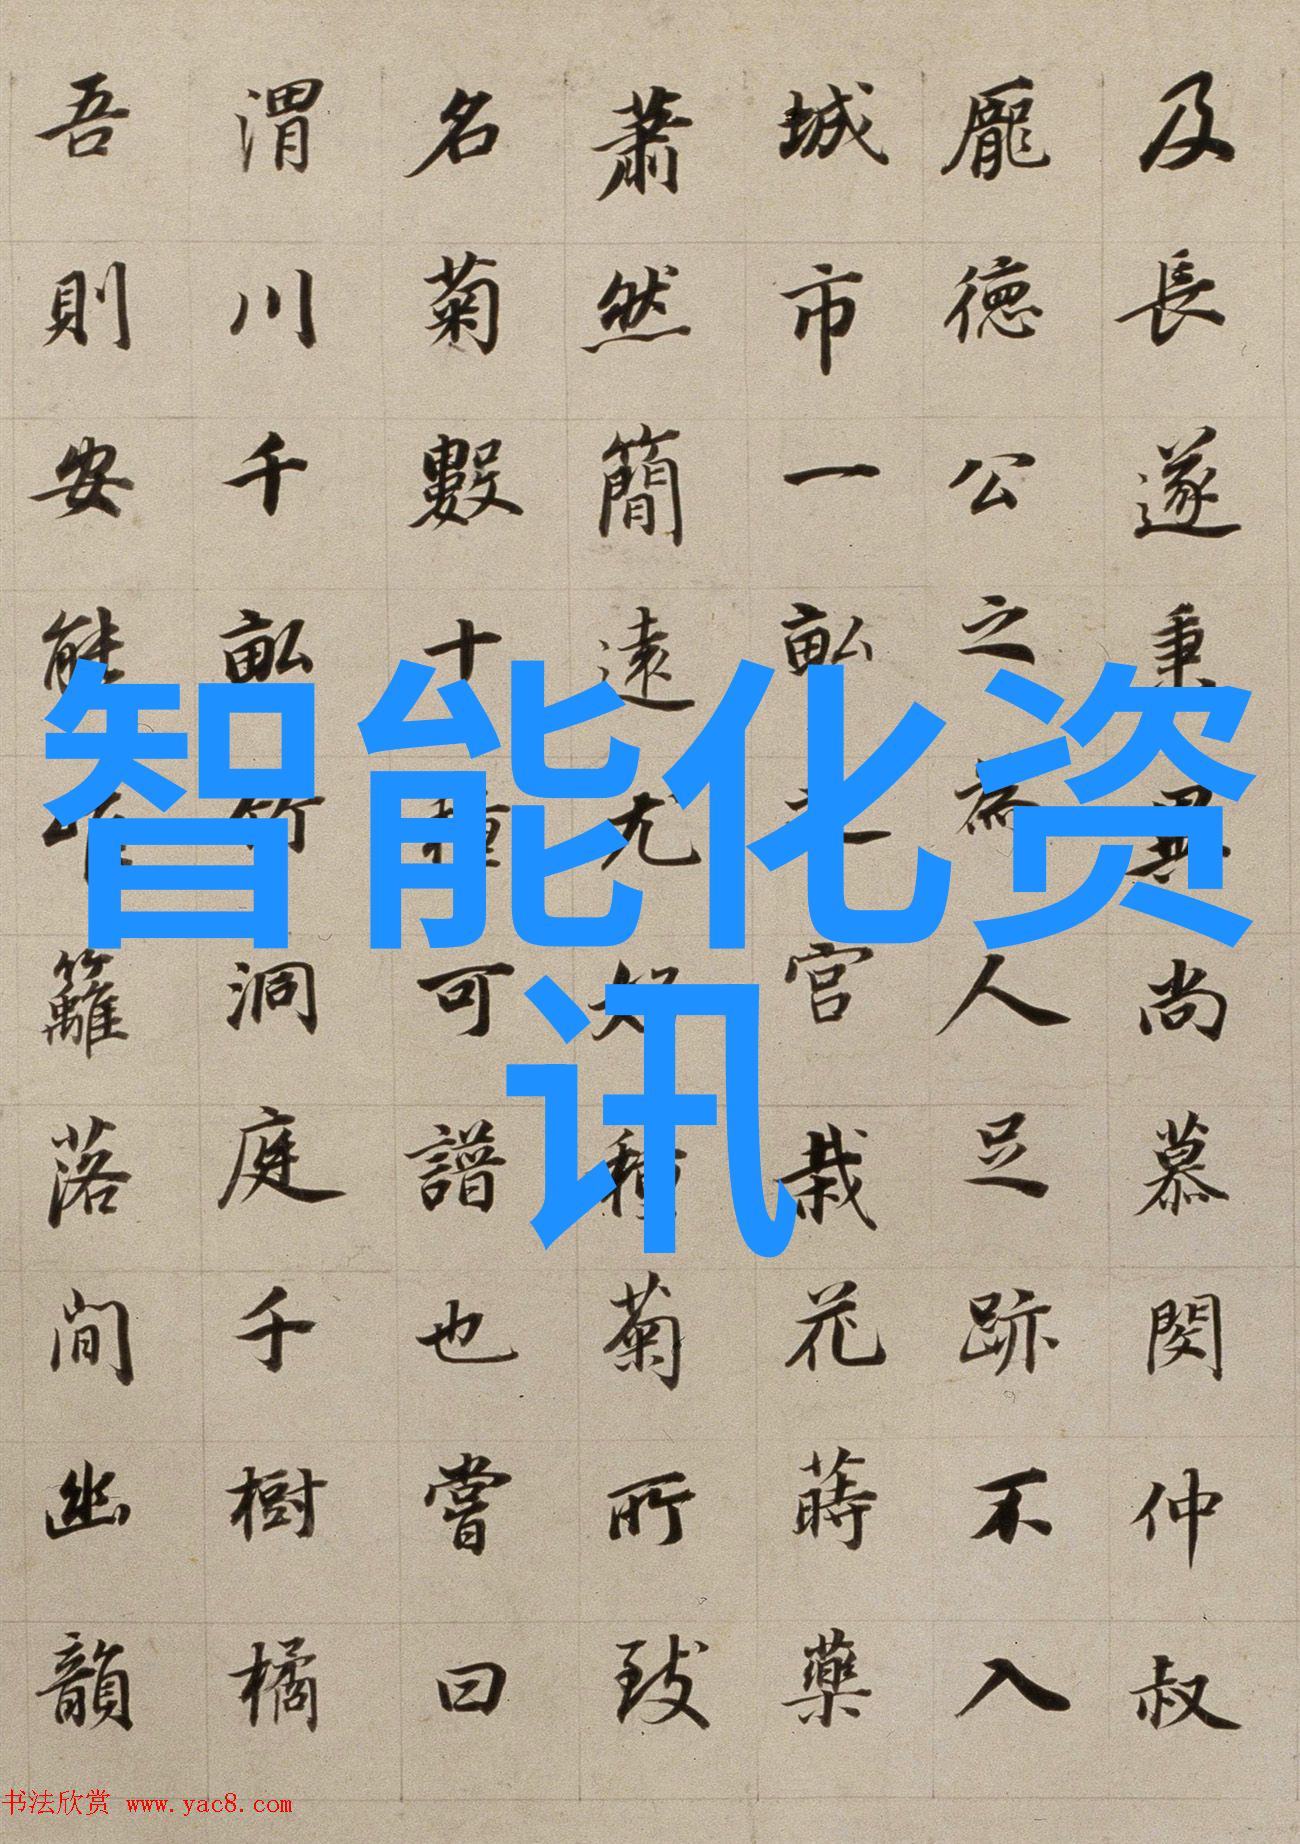 及長遂秉異尚慕閔仲叔
龐德公之為人足跡不入
城市一畝之宮栽花蒔藥
蕭然簡遠尤好種菊所致
名菊數十種可譜也嘗曰
渭川千畝竹洞庭千樹橘
吾則安能籬落間幽韻
智能化资
讯
书法欣赏 www.yac8.com